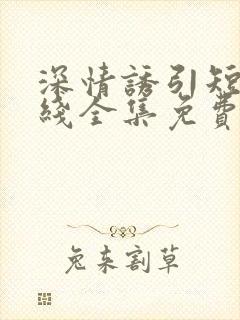 深情誘引短
綫全集免費
兔来割草